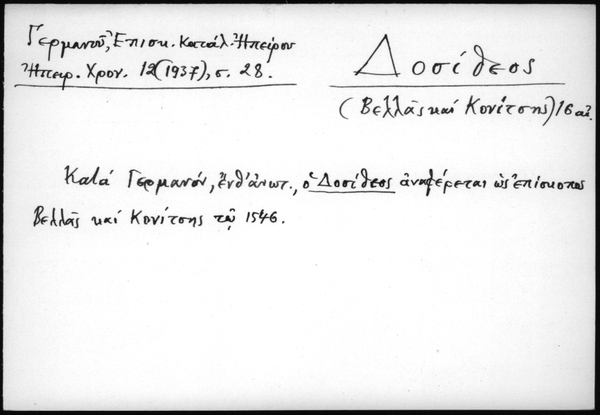 Γερμανοῦ, Ἐπισκ. Κατάλ. Ἠπείρου
Ἠπειρ. Χρον. 12(1937), σ. 28.
Δοσίθεος
(Βελλᾶς καί Κονίτσης) 16 αἰ.
Κατά Γερμανόν, ἔνθ' ἀνωτ., ὁ Δοσίθεος ἀναφέρεται ὡς ἐπίσκοπος
Βελλᾶς καί Κονίτσης τῷ 1546.